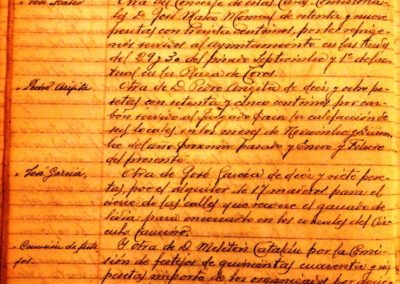 José Mateo
Otra del Conserje de estas Casas Consistoria-
les D. José Mateo Monreal de setenta y nueve
pesetas con treinta centimos, por el refrige-
rio servido al ayuntamiento en las tardes
del 29 y 30 del pasado septiembre y 1º del ac-
tual en la Plaza de Toros.
Pedro Azpeita
Otra de D. Pedro Azpeita de diez y ocho pe-
setas con setenta y cinco centimos por car-
bon servido al juzgado para la calefaccion de
sus locales en los meses de Noviembre y Diciem-
bre del año proximo pasado y Enero y Febrero
del presente.
José Garcia
Otra de José Garcia de diez y siete pese-
tas, por el alquiler de 17 maderos para el
cierre de las calles que recorre el ganado de
lidia para encerrarlo en los corrales del Cir-
culo taurino.
Comision de feste-
jos.
Y otra de D. Meliton Catalán por la Comi-
sión de festejos de quinientas cuarenta y seis
pesetas importe de los